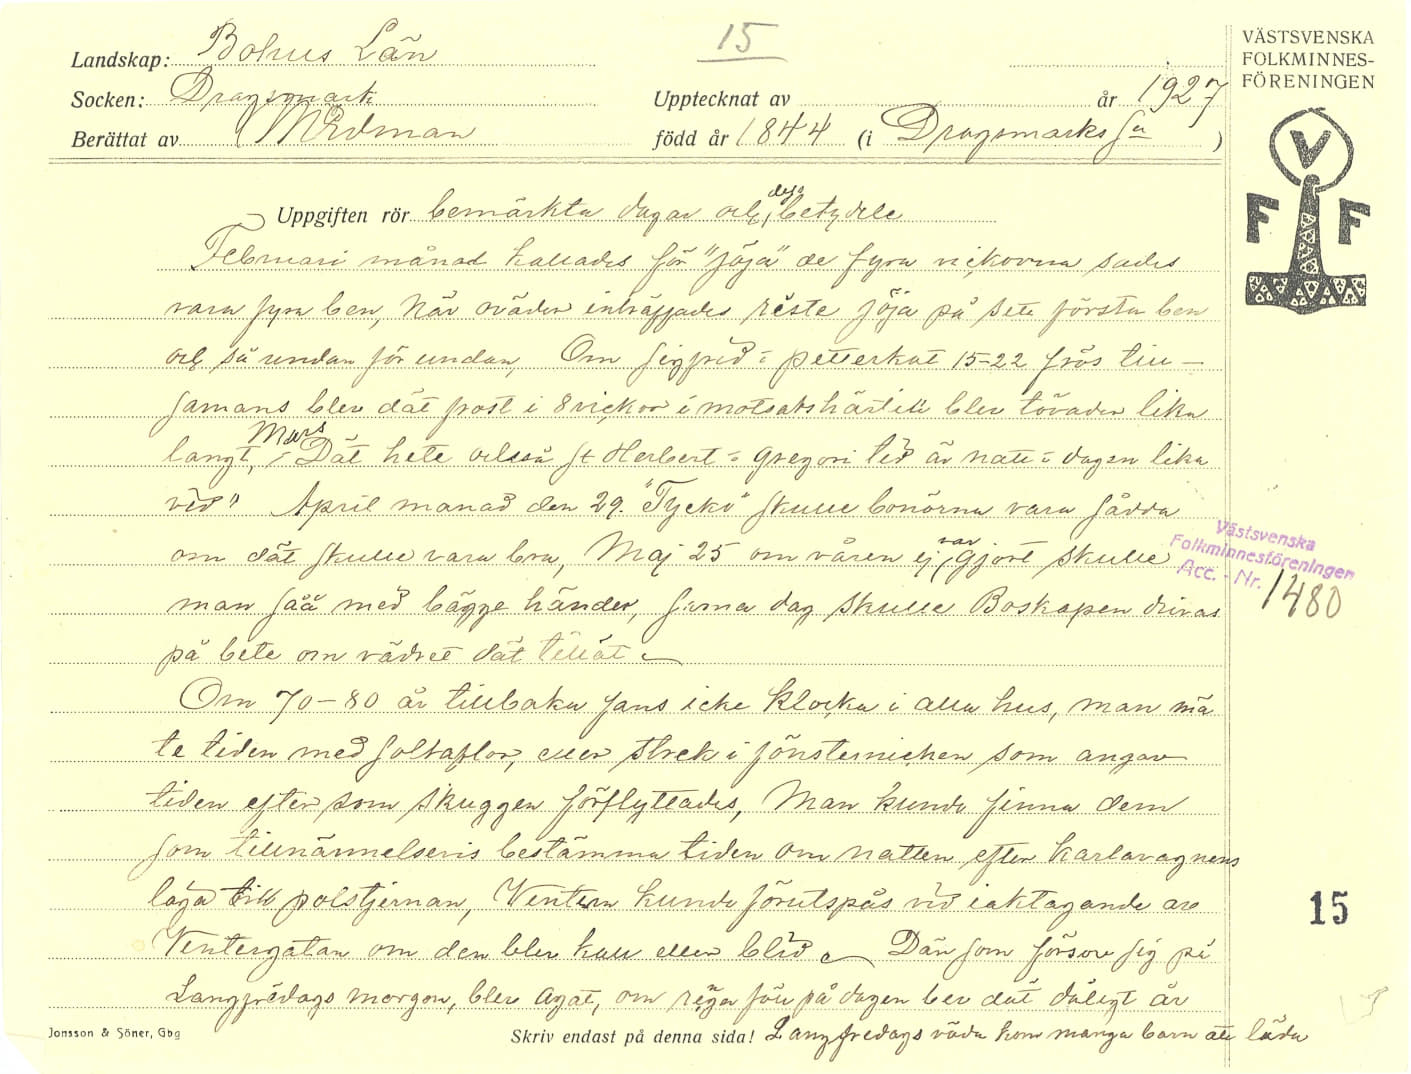 15
VÄSTSVENSKA
FOLKMINNES-
FÖRENINGEN
Landskap: Bohus Län
Socken: Dragsmark
Upptecknat av år 1927
Berättat av Wedman född år 1844 (i Dragsmarks sn )
V
F F
Uppgiften rör bemärkta dagar och deras betydele
Februari månad kallades för "Jöja" de fyra vickorna sades
vara fyra ben, när oväder inträffades reste Jöja på sete första ben
och så undan för undan, Om Sigfrid = petterkat 15-22 frös till-
samans blev dät frost i 8 vickor i motsatshärteti blev tövader lika
langt, Mars Dät hete också St Herbert = Gregori tid är natt = dagen lika
vid" April manad den 29. "Tycko" skulle bonörna vara sådda
om dät skulle vara bra, Maj 25 om våren ej var gjort skulle
man såå med bägge händer, sama dag skulle Boskapen drivas
på bete om vädret dät tillät
Om 70-80 år tillbaka fans icke klocka i alla hus, man mä
te tiden med soltaflor, eller strek i fönsternichen som angav
tiden efter som skuggen förflyttades, Man kunde finna dem
som tillnärmelseris bestämma tiden om natten efter karlavagnens
läga till polstjernan, Ventern kunde förutspås vid iaktagande av
Ventergatan om den blev kall eller blid Dän som försov sig på
Langfredags morgon, blev Agat, om regn föll på dagen bev dät däligt år
Jonsson & Söner, Gbg
Skriv endast på denna sida! Langfredags väda kom manga barn att läda
Västsvenska
Folkminnesföreningen
Acc. - Nr. 1480
15